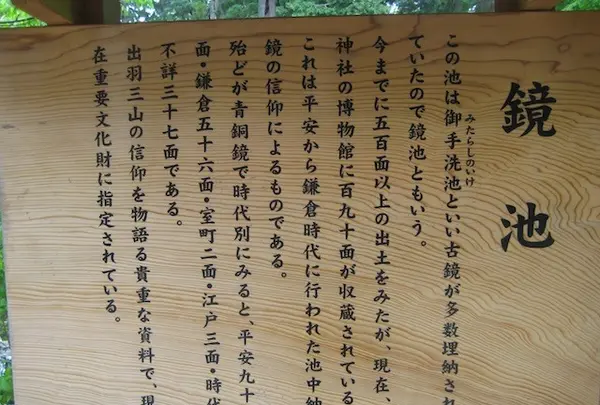 鏡池
この池は御手洗池といい古鏡が多数埋納され
みたらしのいけ
ていたので鏡池ともいう。
今までに五百面以上の出土をみたが、現在、
神社の博物館に百九十面が収蔵されている
これは平安から鎌倉時代に行われた池中納
鏡の信仰によるものである。
殆どが青銅鏡で時代別にみると、平安九十
面・鎌倉五十六面・室町二面・江戸三面・時代
不詳三十七面である。
出羽三山の信仰を物語る貴重な資料で、現
在重要文化財に指定されている。